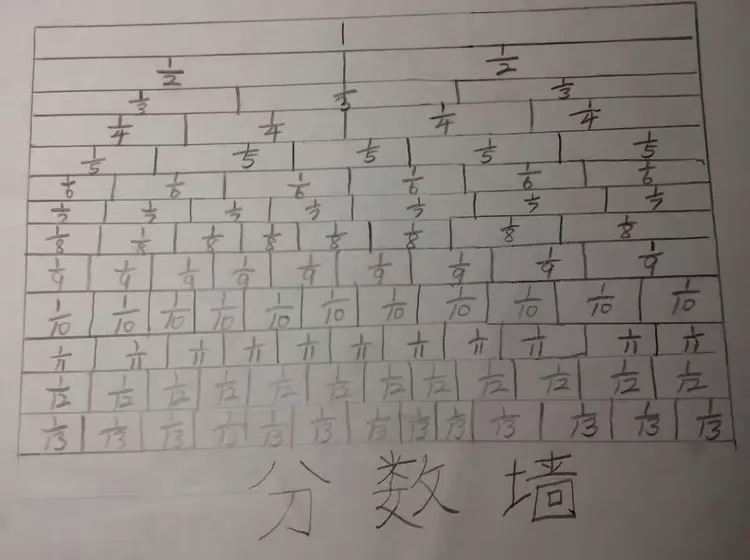 1
1/2 1/2
1/3 1/3 1/3
1/4 1/4 1/4 1/4
1/5 1/5 1/5 1/5 1/5
1/6 1/6 1/6 1/6 1/6 1/6
1/7 1/7 1/7 1/7 1/7 1/7 1/7
1/8 1/8 1/8 1/8 1/8 1/8 1/8 1/8
1/9 1/9 1/9 1/9 1/9 1/9 1/9 1/9 1/9
1/10 1/10 1/10 1/10 1/10 1/10 1/10 1/10 1/10 1/10 1/10
1/11 1/11 1/11 1/11 1/11 1/11 1/11 1/11 1/11 1/11 1/11
1/12 1/12 1/12 1/12 1/12 1/12 1/12 1/12 1/12 1/12 1/12 1/12
1/13 1/13 1/13 1/12 1/13 1/13 1/13 1/13 1/13 1/13 1/13 1/13 1/13
分数墙